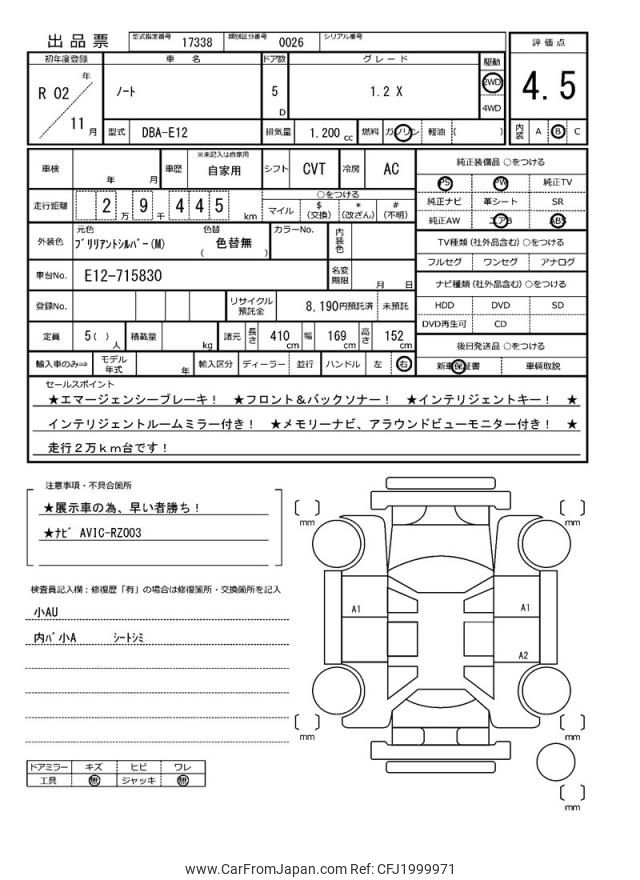 出品票 型式指定番号 17338 類別区分番号 0026 シリアル番号
評価点
初年度登録 車名 ドア数 グレード 駆動
R 02 年 ノート 5 D 1.2 X 2WD 4.5
4WD
11 月 型式 DBA-E12 排気量 1.200 cc 燃料 ガソリン 軽油 ( ) 内装 A B C
車検 年 月 車歴 ※未記入は自家用 自家用 シフト CVT 冷房 AC 純正装備品 ○をつける
PS PW 純正TV
走行距離 2 万 9 千 4 4 5 km ○をつける
マイル $(交換) *(改ざん) #(不明)
純正ナビ 革シート SR
純正AW エアB ABS
外装色 元色 ブリリアントシルバー(M) 色替 色替無 ( ) カラーNo. 内装色
TV種類(社外品含む)○をつける
フルセグ ワンセグ アナログ
車台No. E12-715830 名変期限 月 日
ナビ種類(社外品含む)○をつける
登録No. リサイクル預託金 8,190円預託済 未預託
HDD DVD SD
DVD再生可 CD
定員 5( ) 人 積載量 kg 諸元 長さ 410 cm 幅 169 cm 高さ 152 cm
後日発送品 ○をつける
輸入車のみ⇨ モデル年式 年 輸入区分 ディーラー 並行 ハンドル 左 右
新車保証書 車輌取説
セールスポイント
★エマージェンシーブレーキ! ★フロント&バックソナー! ★インテリジェントキー! ★
インテリジェントルームミラー付き! ★メモリーナビ、アラウンドビューモニター付き! ★
走行2万km台です!
注意事項・不具合箇所
★展示車の為、早い者勝ち!
★ナビ AVIC-RZ003
検査員記入欄:修復歴「有」の場合は修復箇所・交換箇所を記入
小AU
内バ小A シートシミ
mm
mm
A1
A1
A2
mm
mm
mm
ドアミラー キズ ヒビ ワレ
工具 無 ジャッキ 無
www.CarFromJapan.com Ref: CFJ1999971